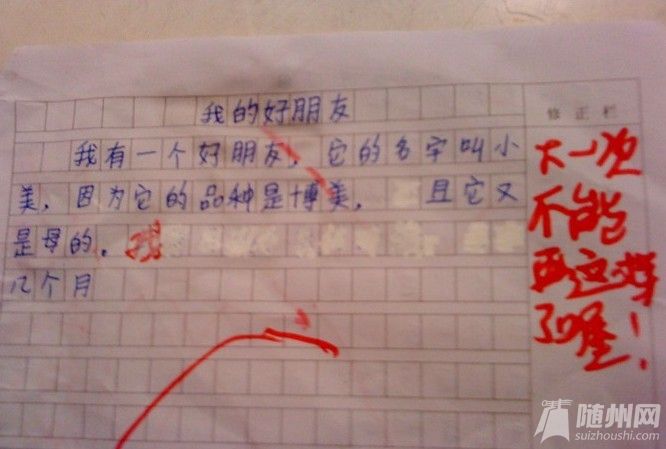 我的好朋友
修正栏
我有一个好朋友，它的名字叫小
美，因为它的品种是博美，且它又
是母的。
几个月
大一次
不能
再这样
了喔！
随州网
suizhoushi.com